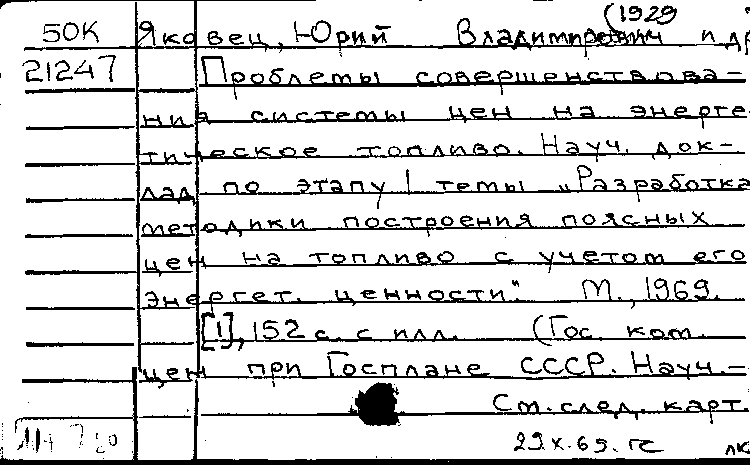 (1929
50К Яковец, Юрий Владимирович и др
21247 Проблемы совершенствова-
ния системы цен на энерге
тическое топливо. Науч. док-
лад по этапу I темы „Разработка
методики построения поясных
цен на топливо с учетом его
энергет. ценности". М., 1969.
[1], 152 с. с илл. (Гос. ком.
цен при Госплане СССР. Науч.-
См. след. карт.
29.X.69.